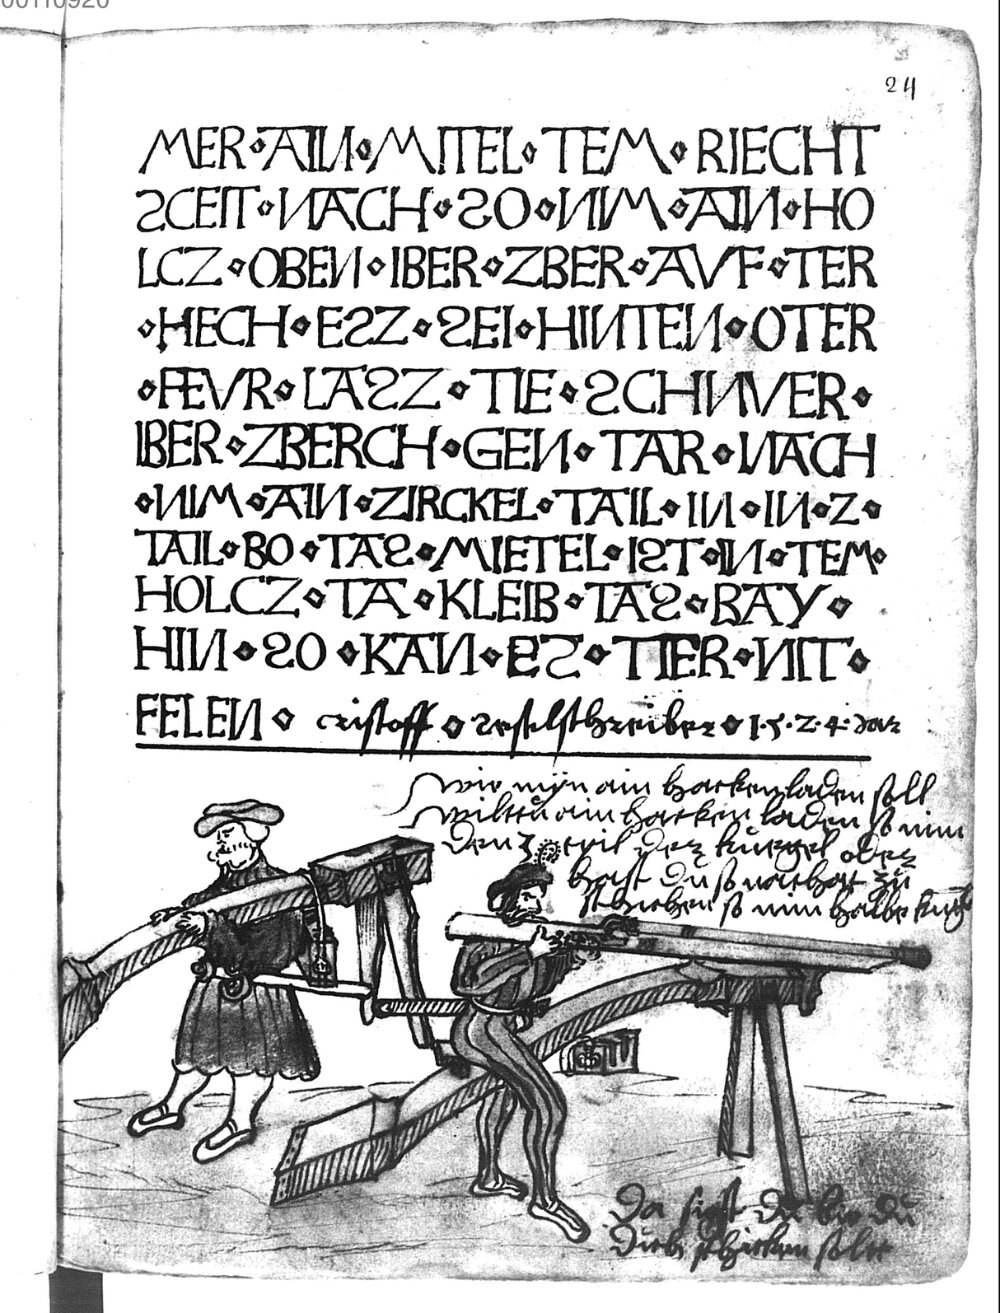 00110920
24
MER ⋄ AIN ⋄ MITEL ⋄ TEM ⋄ RIECHT
SCEIT ⋄ NACH ⋄ SO ⋄ NIM ⋄ AIN ⋄ HO
LCZ ⋄ OBEN ⋄ IBER ⋄ ZBER ⋄ AVF ⋄ TER
⋄ HECH ⋄ ESZ ⋄ SEI ⋄ HINTEN ⋄ OTER
⋄ FEVR ⋄ LASZ ⋄ TIE ⋄ SCHNVER ⋄
IBER ⋄ ZBERCH ⋄ GEN ⋄ TAR ⋄ NACH
⋄ NIM ⋄ AIN ⋄ ZIRCKEL ⋄ TAIL ⋄ IN ⋄ IN ⋄ Z ⋄
TAIL ⋄ BO ⋄ TAS ⋄ MIETEL ⋄ IST ⋄ IN ⋄ TEM ⋄
HOLCZ ⋄ TA ⋄ KLEIB ⋄ TAS ⋄ BAY ⋄
HIN ⋄ SO ⋄ KAN ⋄ ES ⋄ TIER ⋄ NIT ⋄
FELEN ⋄ cristoff ⋄ seselschreiber ⋄ 1·5·2·4· Jar
wie myn ain hacken laden soll
wiltu ain hacken laden so nim
den 3 teil der kuegel oder
hast du so
schiehen so nim halbe
Da sigst du wie du
dich schicken solt